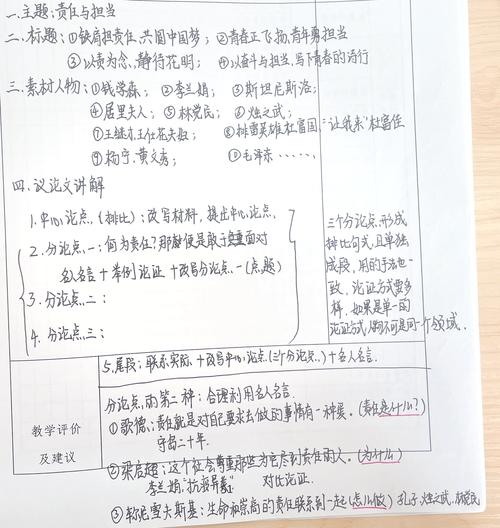 一.主题:责任与担当
二.标题:①铁肩担责任,共圆中国梦;②青春正飞扬,青年勇担当
③以责为念,静待花明;④以奋斗与担当,写下青春的诗行
三.素材人物:①钱学森;②李兰娟;③斯坦尼斯洛;
④居里夫人;⑤林俊民;⑥烛之武;
⑦王继才王仕花夫妇;⑧排雷英雄杜富国,"让我来"杜富国
⑨杨宁、黄文秀;⑩毛泽东……
四.议论文讲解
1.中心论点(排比):改写材料,提出中心论点,
2.分论点一:何为责任?那都便是敢于直面对
名人名言+举例论证+改写分论点一(点题)
3.分论点二:
4.分论点三:
三个分论点,形成
排比句式,且单独
成段,用的手法也一
致,论证方式要多
样,如果是单一的
论证方式,人物不可是同一个领域.
5.尾段:联系实际+改写中心论点(三个分论点)+名人名言.
教学评价
及建议
分论点雨第二种:合理利用名人名言
①歌德:责任就是对自己要求去做的事情有一种爱.(责任是什么?)
守岛二十年.
②梁启超:这个社会尊重那些为它尽到责任的人.(为什么)
李兰娟"抗疫" 对比论证.
③ :生命和崇高的责任联系到一起(怎么做)孔子,烛之武,林俊民